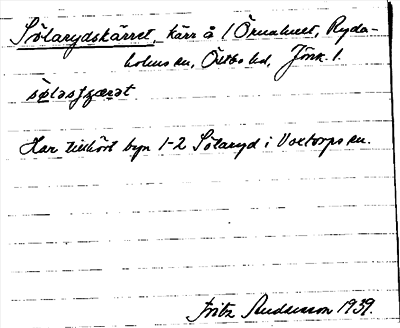 Sölarydskärret, kärr å 1 Örnahult, Ryda-
holms sn, Östbo hd, Jönk. l.
sølasȷ̣ærət
Har tillhört byn 1-2 Sölaryd i Voxtorps sn.
Fritz Andersson 1939.